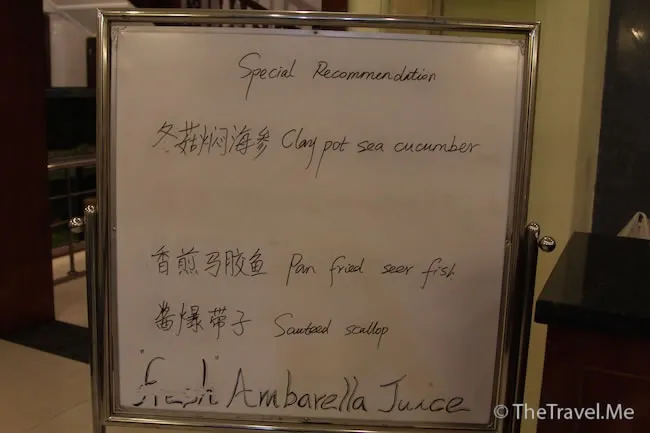 Special Recommendation
冬菇焖海参 Clay pot sea cucumber
香煎马胶鱼 Pan fried seer fish
酱爆带子 Sauteed scallop
Fresh Ambarella Juice
© TheTravel.Me